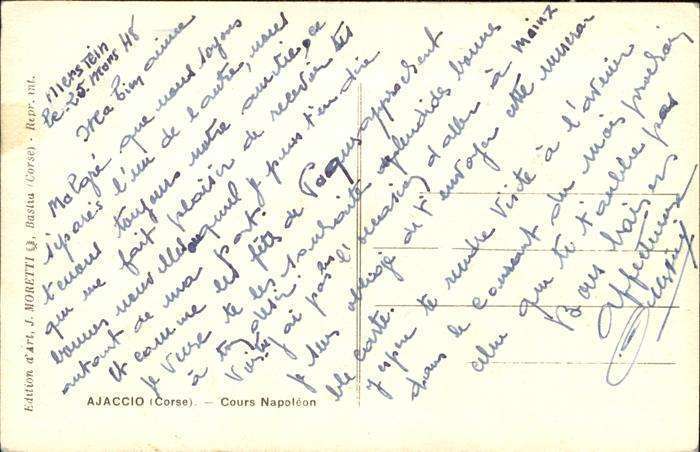 Nierstein
le 25 Mars 48
Ma bien aimée
Malgré que nous soyons
séparés l'un de l'autre, nous
tenons toujours notre amitié, ce
qui me fait plaisir de recevoir tes
bonnes nouvelles je peux t'en dire
autant de ma part.
Et comme les fêtes de Paques approchent
je viens te les souhaiter splendides bonne
à ton désir.
Vu que j'ai pas l'occasion d'aller à Mainz
je suis obligé de t'envoyer cette
ble carte.
J'espère te rendre visite à l'avenir
dans le courant du mois prochain
celui qui ne t'oublie pas
Bons baisers
affectueux
Edition d'Art, J. MORETTI, Bastia (Corse) - Repr. int.
AJACCIO (Corse). — Cours Napoléon